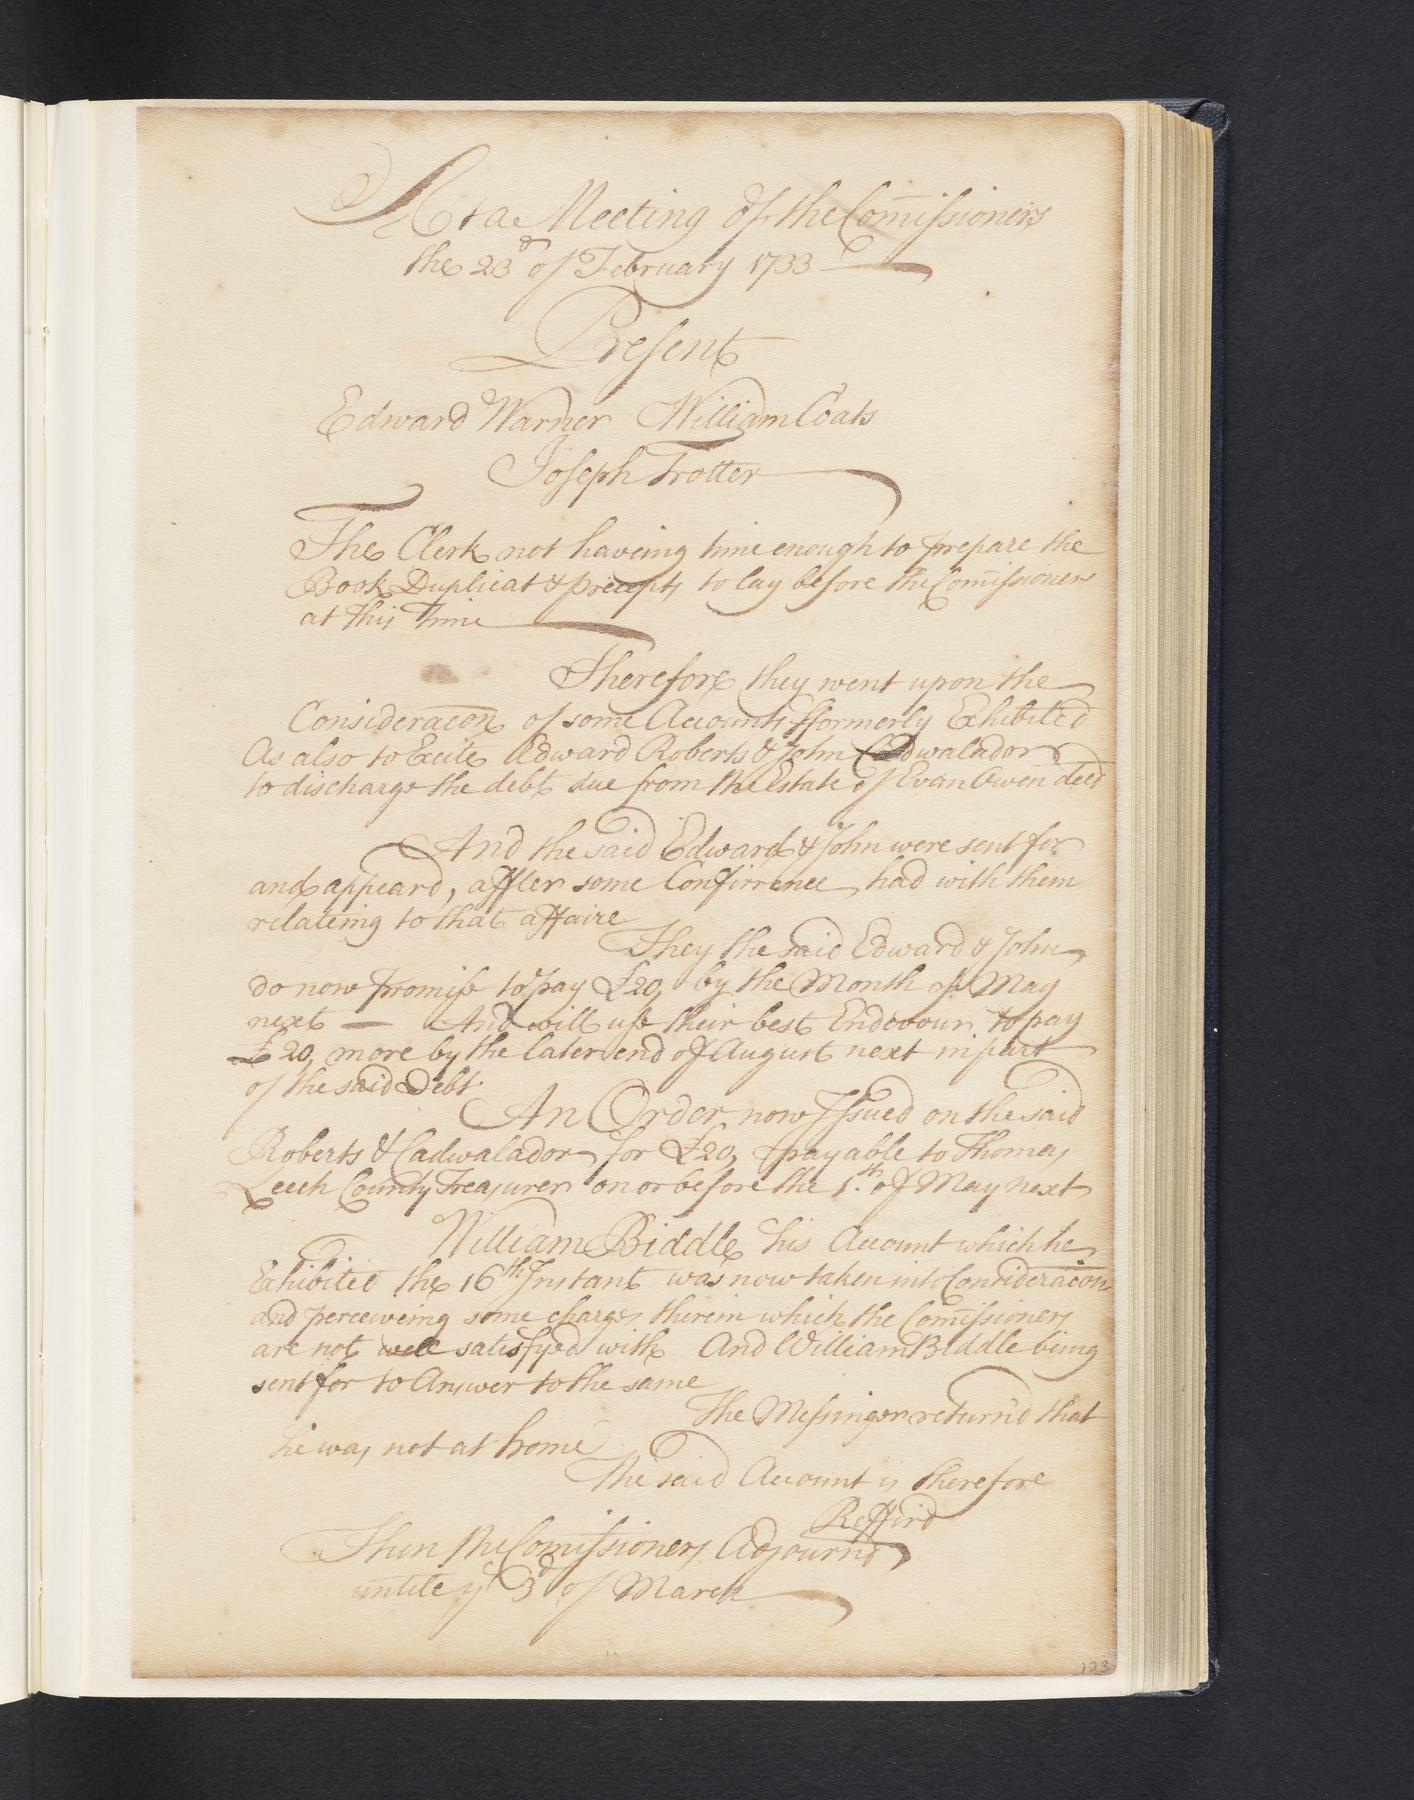 At a Meeting of the Com̄issioners
the 23d of February 1733
Present
Edward Warner William Coats
Joseph Trotter
The Clerk not haveing time enough to prepare the
Book Duplicat & precepts to lay before the Com̄issioners
at this Time
Therefore they went upon the
Consideracon of some Accounts fformerly Exhibited
As also to Excite Edward Roberts & John Cadwalador
to discharge the debt due from the Estate of Evan Owen decd
And the said Edward & John were sent for
and appeard, affter some Confirrence had with them
relateing to that affaire
They the said Edward & John
do now promise to pay £20, by the Month of May
next — And will use their best Endevour to pay
£20, more by the later end of August next in part
of the said Debt.
An Order now Issued on the said
Roberts & Cadwalador for £20, payable to Thomas
Leech County Treasurer on or before the 1.st of May next
William Biddle his Account which he
Exhibited the 16th Instant was now taken into Consideracon
and perceiveing some charges therein which the Com̄issioners
are not well satisfyed with And William Biddle being
sent for to Answer to the same
The Messinger return'd that
he was not at home
The said Account is therefore
Refferd
Then the Com̄issioners Adjourn'd
untile ye 3d of March
123